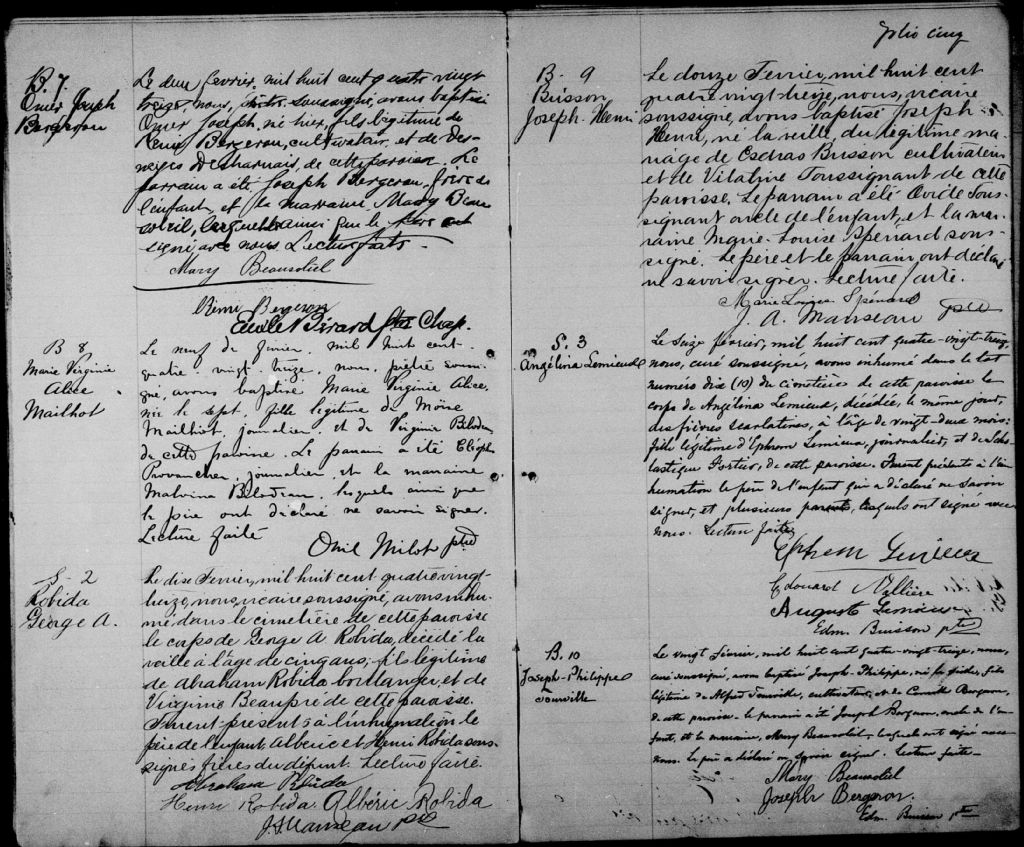 B. 7
Omer Joseph
Bergeron
Le deux fevrier, mil huit cent quatre vingt
treize nous, soussigné, avons baptisé
Omer Joseph, né hier, fils légitime de
Rémi Bergeron, cultivateur, et de Des-
neiges Descharnais, de cette paroisse. Le
parrain a été Joseph Bergeron, frère de
l'enfant et la marraine Mary Beau
soleil, lesquels ainsi que le père ont
signé avec nous. Lecture faite.
Mary Beausoleil
Rémi Bergeron
Girard ptre Chap.
B 8
Marie Virginie
Alice
Mailhot
Le neuf de fevrier, mil huit cent
quatre vingt treize, nous, prêtre sous-
gné, avons baptisé Marie Virginie Alice,
née le sept, fille légitime de Moïse
Mailhot, journalier, et de Virginie Bilodeau
de cette paroisse. Le parrain a été
Provancher, journalier et la marraine
Malvina Bilodeau, lesquels ainsi que
le père ont déclaré ne savoir signer.
Lecture faite
Onil Milot ptre
S- 2
Robida
George A.
Le dix Fevrier, mil huit cent quatre vingt-
treize, nous, vicaire soussigné, avons inhu-
mé dans le cimetière de cette paroisse
le corps de George A Robida, décédé la
veille à l'âge de cinq ans; fils légitime
de Abraham Robida boulanger, et de
Virginie Beaupré de cette paroisse.
Furent présents à l'inhumation le
père de l'enfant Albéric et Henri Robida sous-
signés frères du défunt. Lecture faite.
Abraham Robida
Henri Robida. Albéric Robida
J. A. Manseau ptre
folio cinq
B- 9
Buisson
Joseph-Henri
Le douze Fevrier, mil huit cent
quatre vingt treize, nous, vicaire
soussigné, avons baptisé Joseph-
Henri, né la veille du légitime ma-
riage de Esdras Buisson cultivateur
et de Vitaline Toussignant de cette
paroisse. Le parrain a été Ovide Tous-
signant oncle de l'enfant, et la mar-
raine Marie-Louise Spénard sous-
signé. Le père et le parrain ont déclaré
ne savoir signer. Lecture faite.
Marie Louise Spénard
J. A. Manseau ptre
S. 3
Angélina Lemieux
Le seize février, mil huit cent quatre-vingt-treize,
nous, curé soussigné, avons inhumé dans le lot
numéro dix (10) du cimetière de cette paroisse le
corps de Angélina Lemieux, décédée, le même jour,
des fièvres scarlatines, à l'âge de vingt-deux mois;
fille légitime d'Ephrem Lemieux, journalier, et de Scho-
lastique Fortier, de cette paroisse. Furent présents à l'in-
humation le père de l'enfant qui a déclaré ne savoir
signer, et plusieurs parents, lesquels ont signé avec
nous. Lecture faite
Ephrem Lemieux
Edouard Vallière
Auguste Lemieux
Edm. Buisson ptre
B. 10
Joseph-Philippe
Tourville
Le vingt Février, mil huit cent quatre-vingt-treize, nous,
curé soussigné, avons baptisé Joseph-Philippe, né la veille, fils
légitime de Alfred Tourville, cultivateur, et de Bergeron,
de cette paroisse. le parrain a été Joseph Bergeron, oncle de l'en-
fant, et la marraine, Mary Beausoleil, lesquels ont signé avec
nous. Le père a déclaré ne savoir signer. Lecture faite-
Mary Beausoleil
Joseph Bergeron.
Edm. Buisson ptre